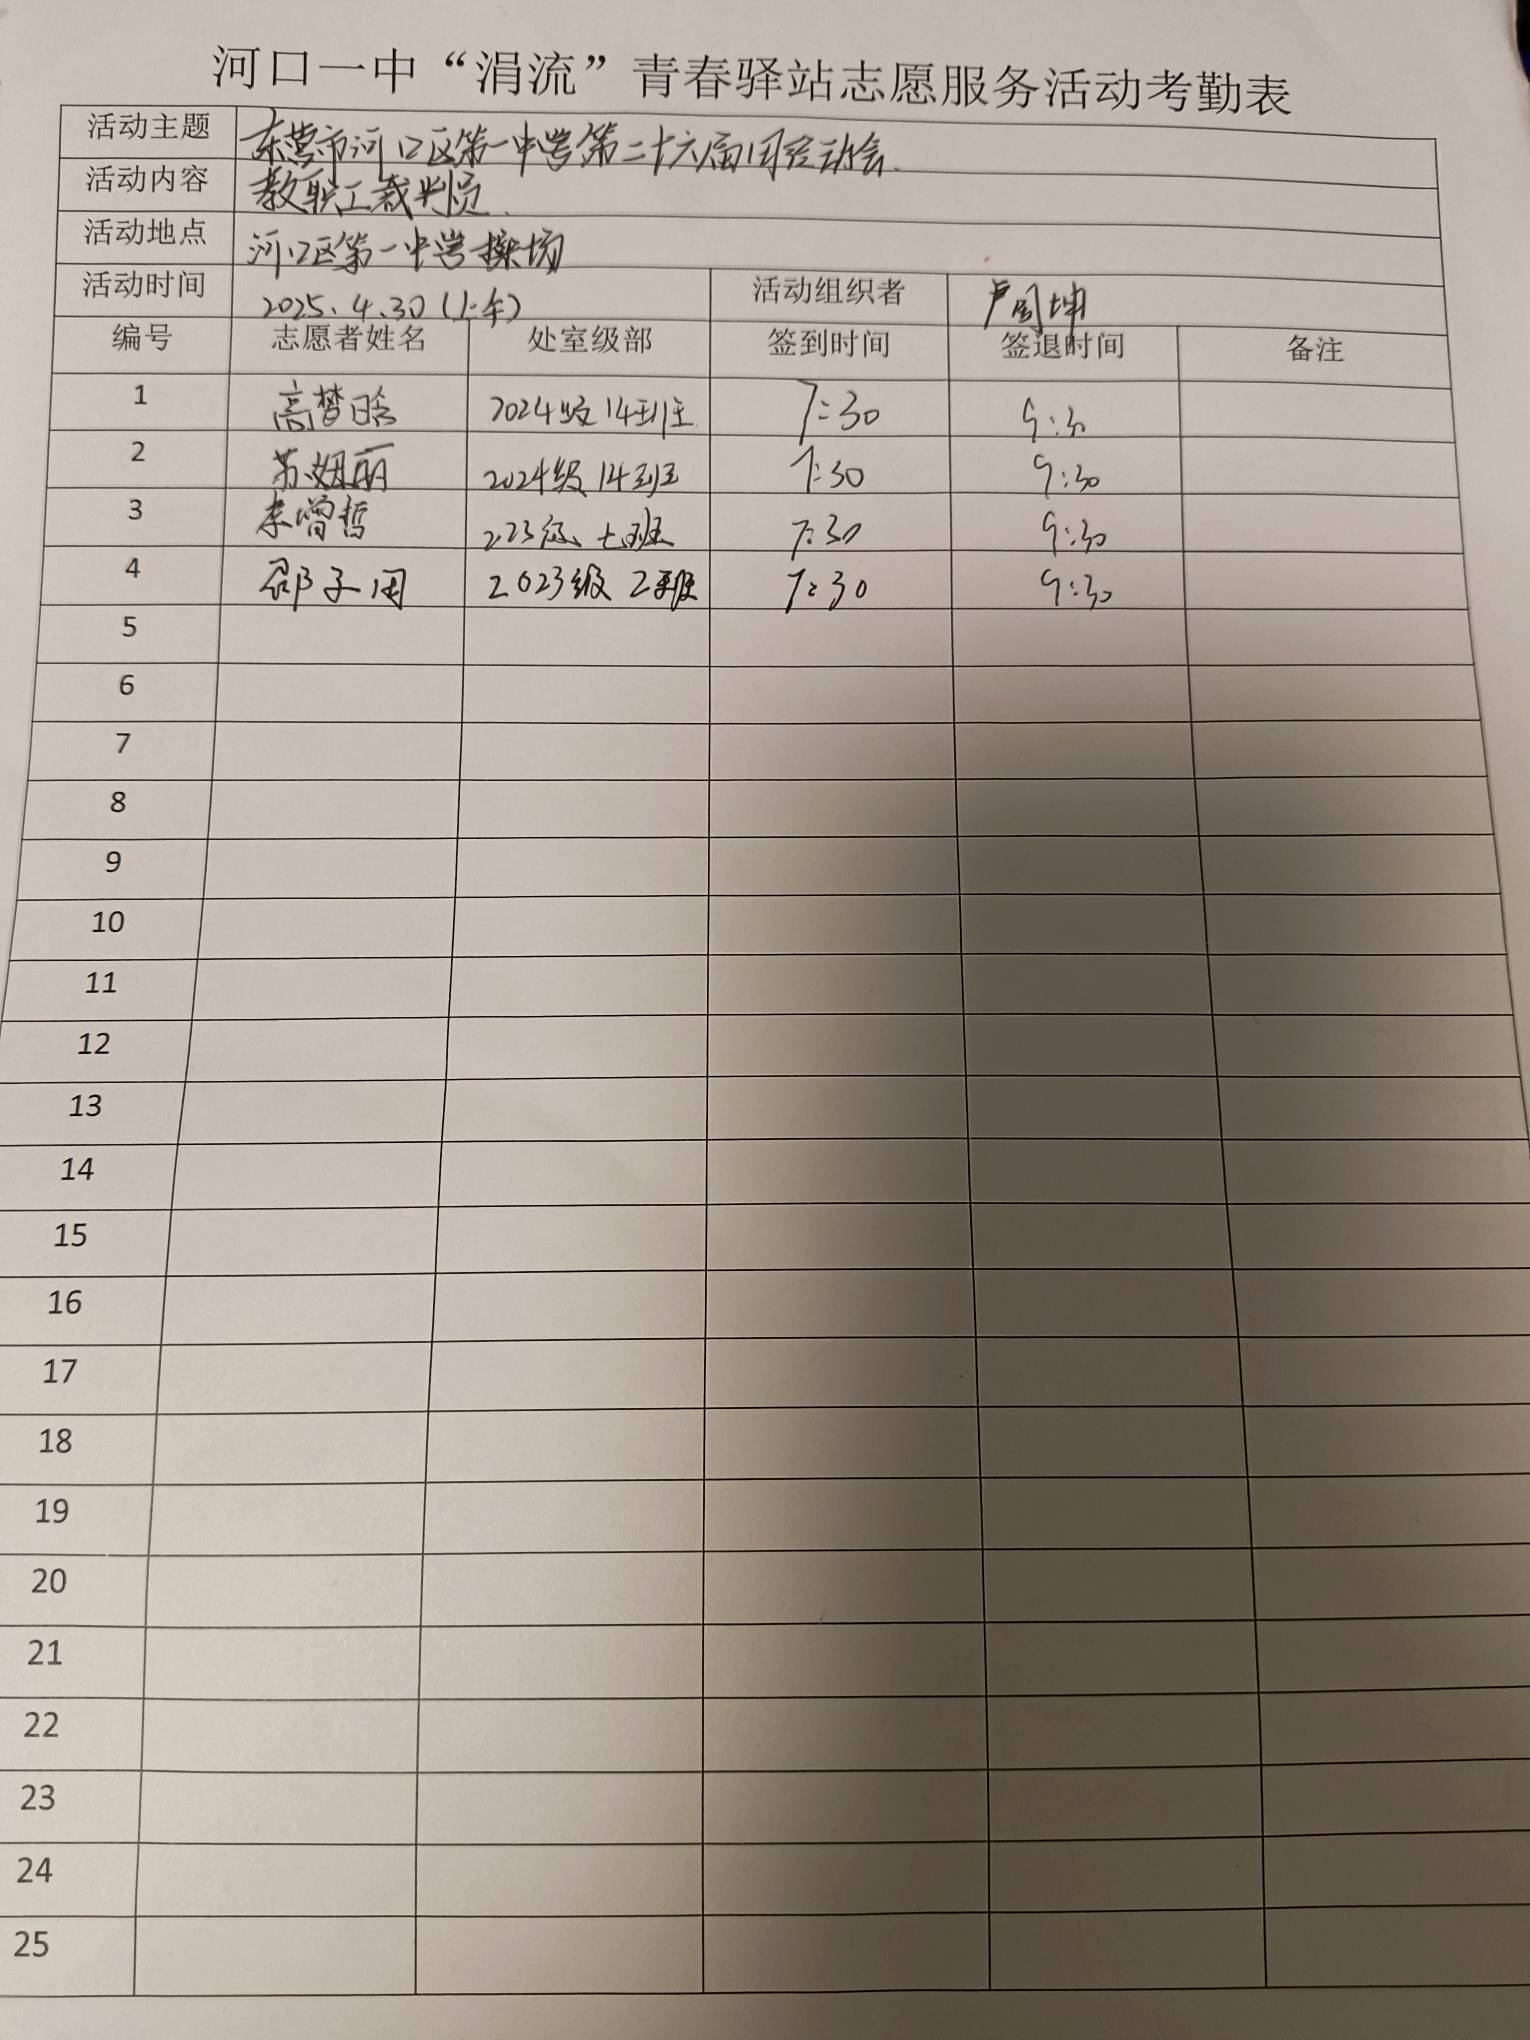 河口一中“涓流”青春驿站志愿服务活动考勤表
活动主题 东营市河口区第一中学第二十六届田径运动会.
活动内容 教职工裁判员.
活动地点 河口区第一中学操场
活动时间 2025.4.30(上午) 活动组织者 卢国坤
编号 志愿者姓名 处室级部 签到时间 签退时间 备注
1 高梦晗 2024级14班 7:30 9:30
2 苏姻丽 2024级14班 7:30 9:30
3 李增哲 223级七班 7:30 9:30
4 邵子困 2023级2班 7:30 9:30
5
6
7
8
9
10
11
12
13
14
15
16
17
18
19
20
21
22
23
24
25